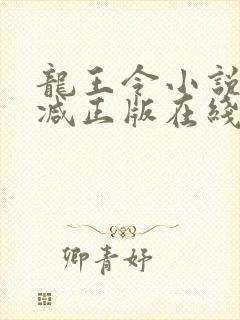 龍王令小說
减正版在綫
卿青妤